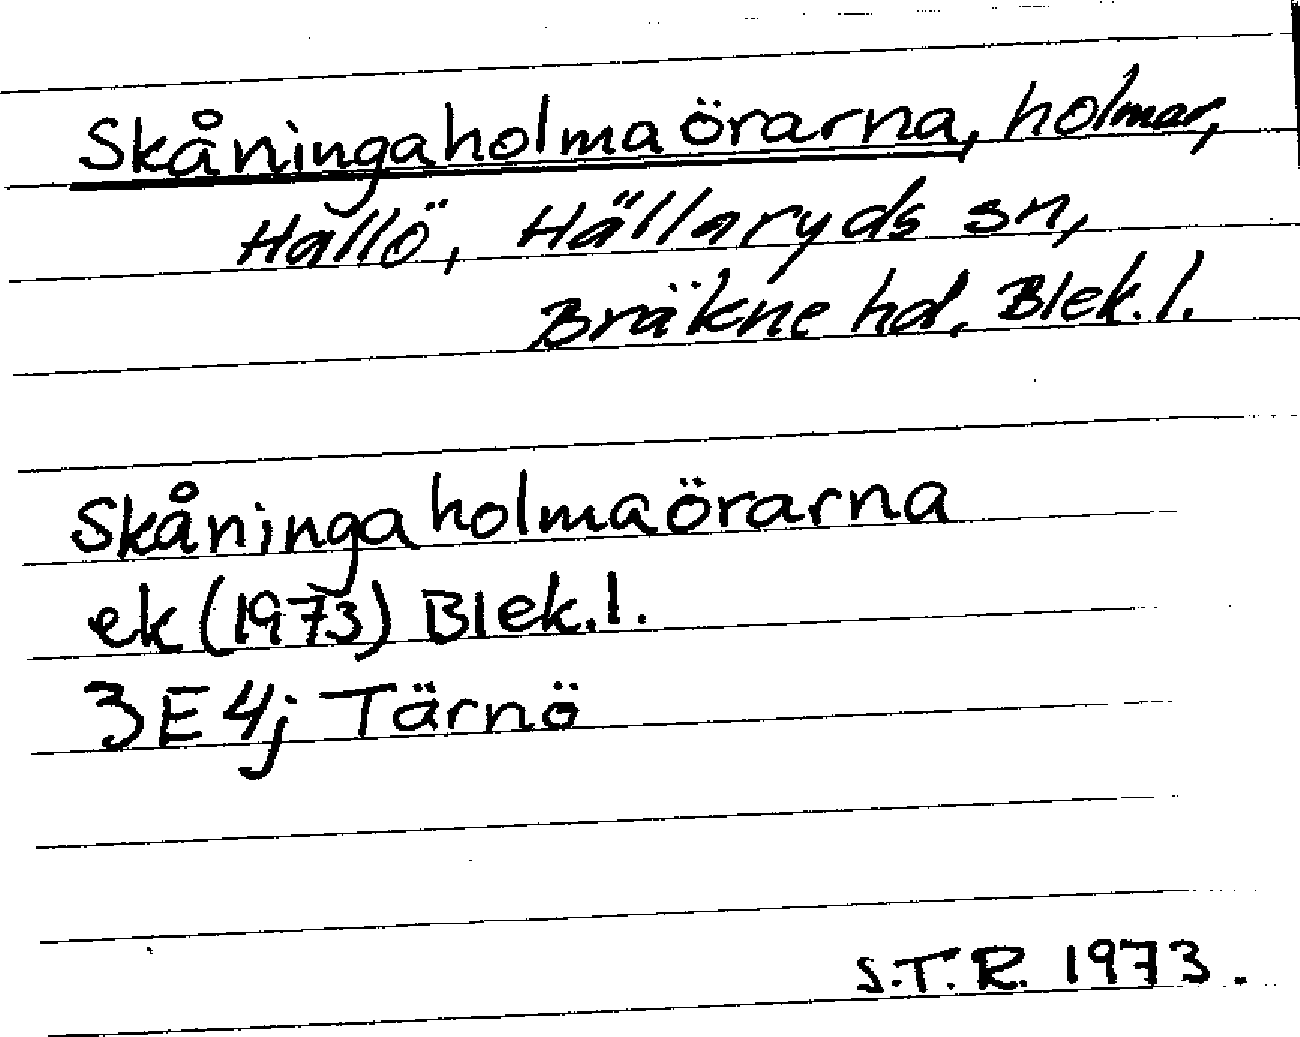 Skåningaholmaörarna, holmar,
Hallö, Hällaryds sn,
Bräkne hd, Blek.l.
Skåningaholmaörarna
ek (1973) Blek.l.
3E4j Tärnö
S.T.R. 1973.